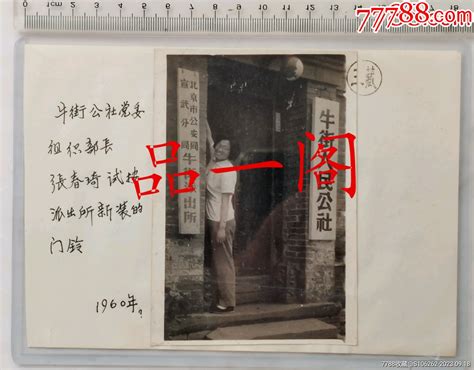 77788.com
0 1 2 3 4 5 6 7 8 9 10 11 12 13 14 15 16 17 18
牛街公社党委
组织部长
张春琦试按
派出所新装的
门铃
1960年。
北京市公安局
宣武分局
牛街派出所
牛街人民公社
品一阁
7788收藏@S106262 2023.09.18